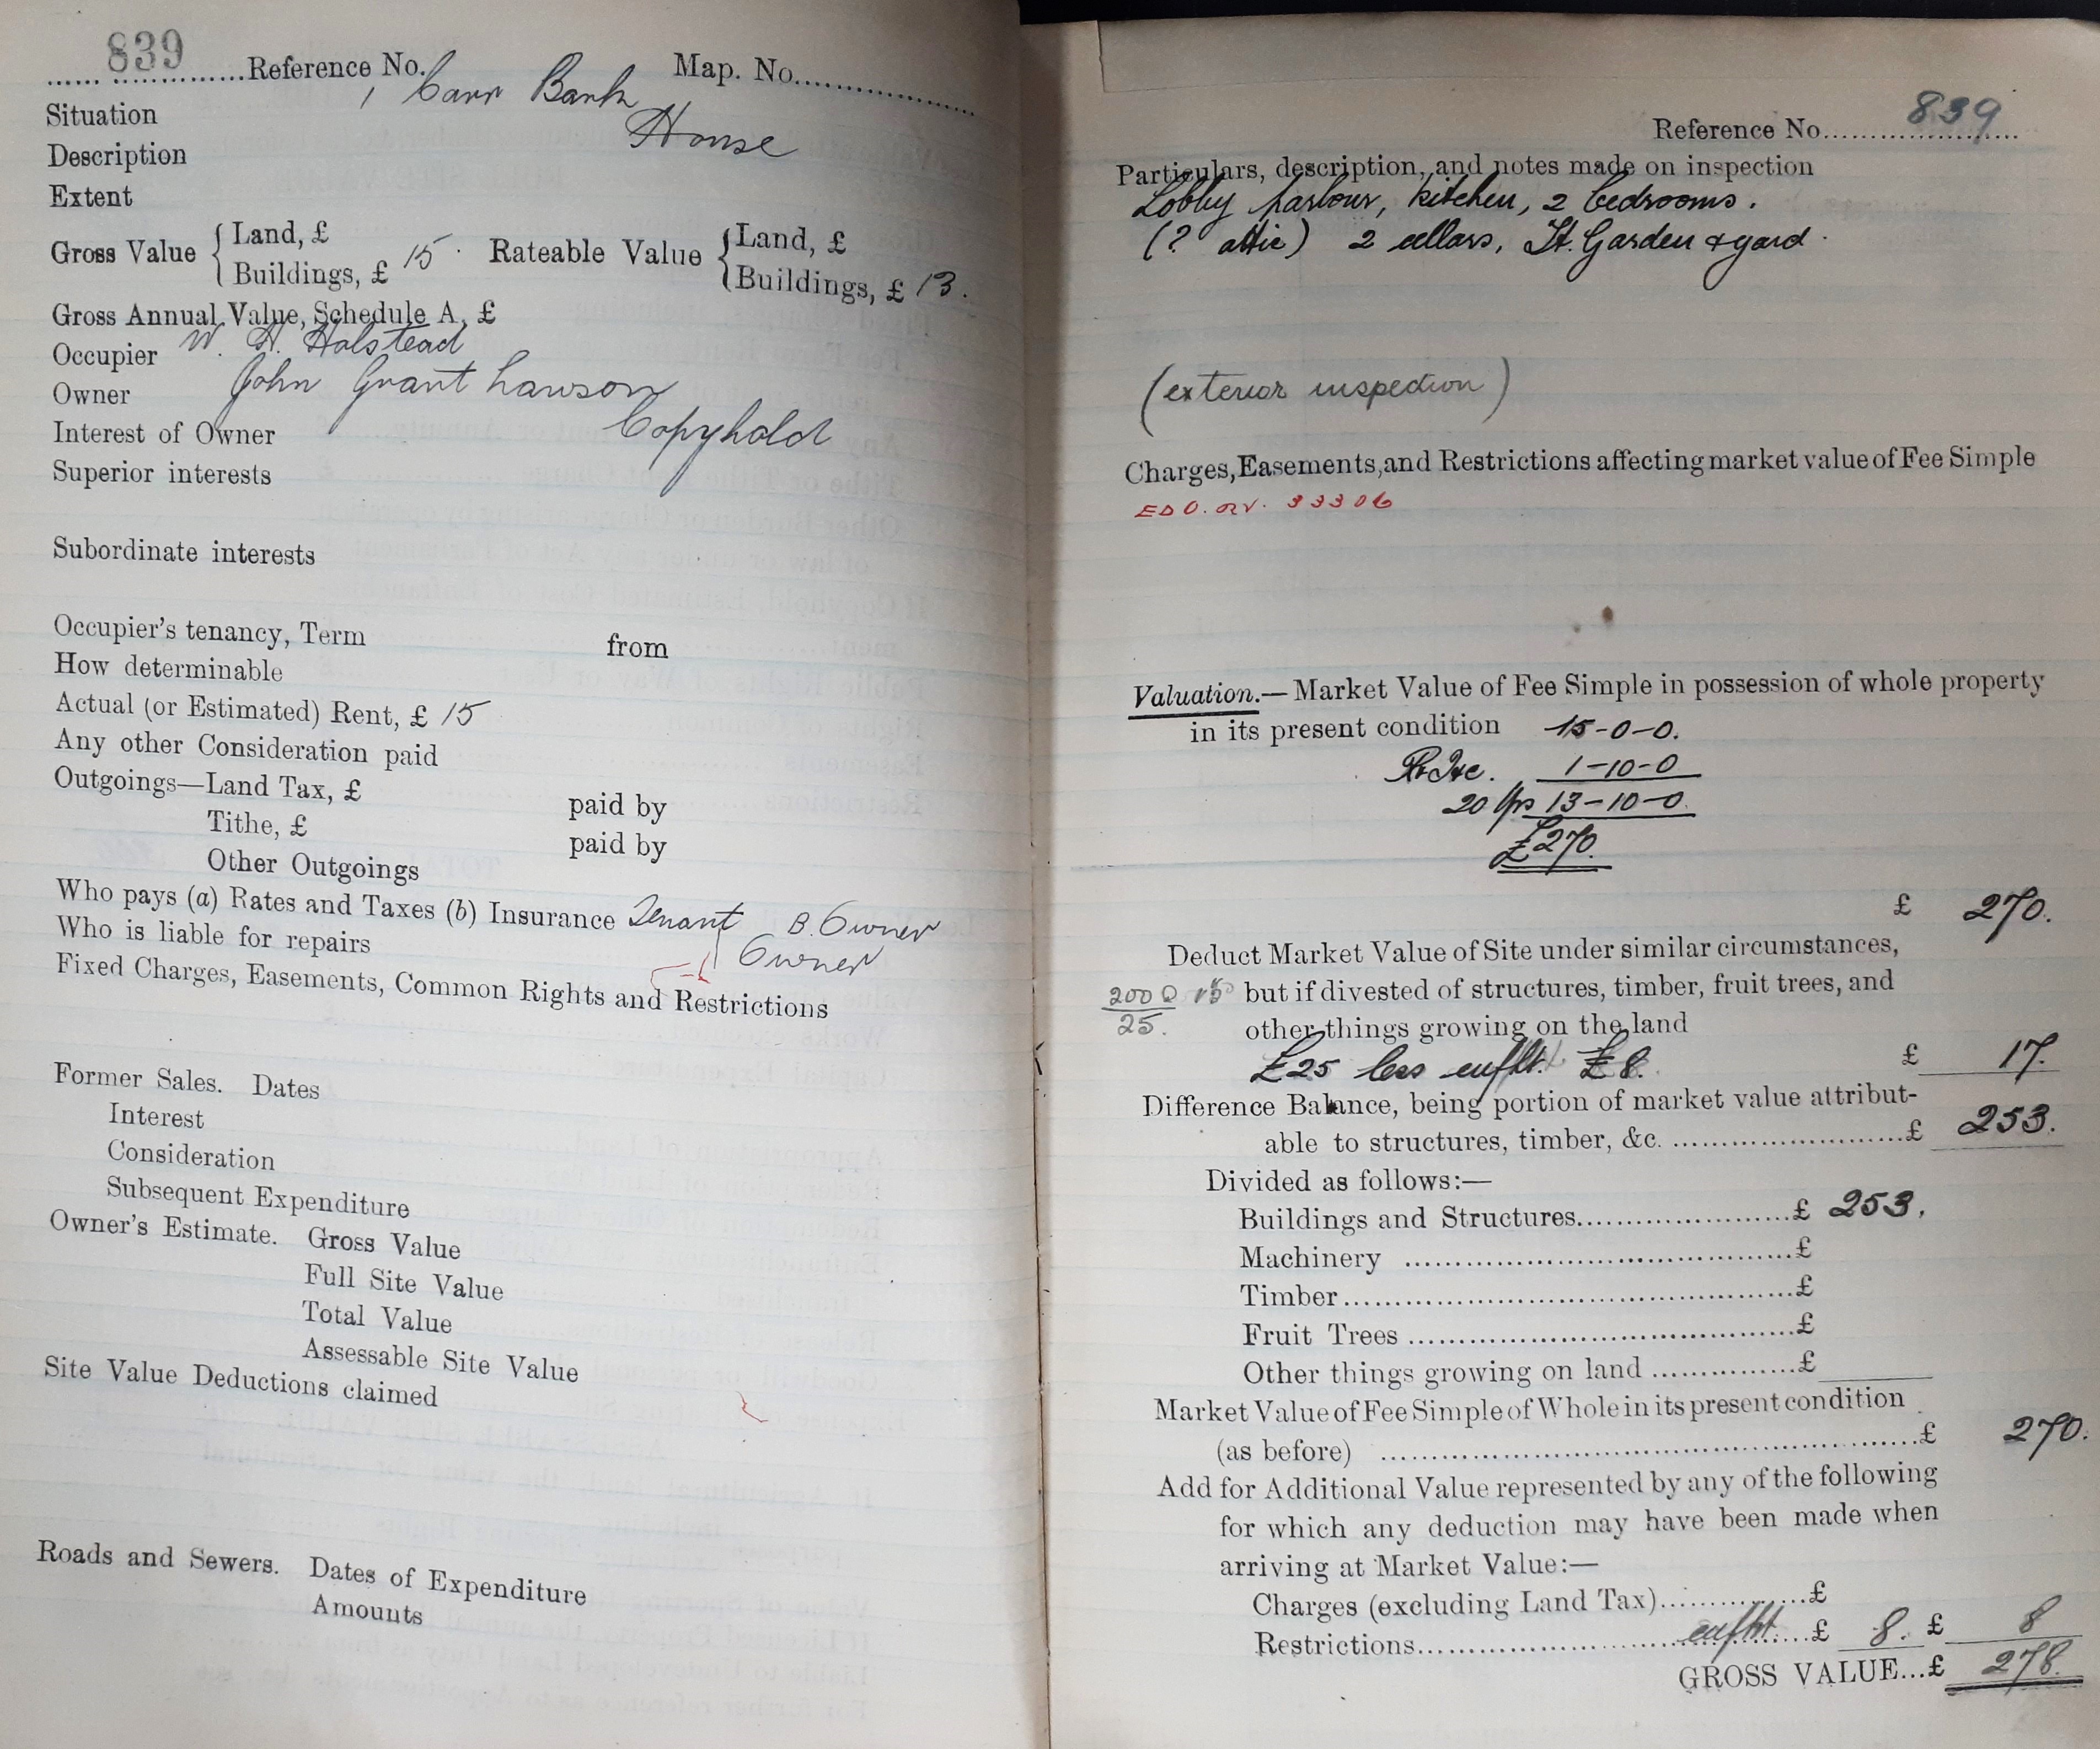 839 Reference No. Map. No.
Situation 1 Carr Bank
Description House
Extent
Gross Value { Land, £ Rateable Value { Land, £
Buildings, £ 15. Buildings, £ 13.
Gross Annual Value, Schedule A, £
Occupier W. H. Halstead
Owner John Grant Lawson
Interest of Owner Copyhold
Superior interests
Subordinate interests
Occupier's tenancy, Term from
How determinable
Actual (or Estimated) Rent, £ 15
Any other Consideration paid
Outgoings—Land Tax, £ paid by
Tithe, £ paid by
Other Outgoings
Who pays (a) Rates and Taxes (b) Insurance Tenant B. Owner
Who is liable for repairs Owner
Fixed Charges, Easements, Common Rights and Restrictions
Former Sales. Dates
Interest
Consideration
Subsequent Expenditure
Owner's Estimate. Gross Value
Full Site Value
Total Value
Assessable Site Value
Site Value Deductions claimed
Roads and Sewers. Dates of Expenditure
Amounts
Reference No. 839
Particulars, description, and notes made on inspection
Lobby parlour, kitchen, 2 bedrooms.
(? attic) 2 cellars, Ft. Garden & yard.
(exterior inspection)
Charges, Easements, and Restrictions affecting market value of Fee Simple
33306
Valuation.— Market Value of Fee Simple in possession of whole property
in its present condition 15-0-0.
1-10-0
20 Yps 13-10-0.
£270.
£ 270.
Deduct Market Value of Site under similar circumstances,
200 @ but if divested of structures, timber, fruit trees, and
25. other things growing on the land
£25 less enfht. £8. £ 17.
Difference Balance, being portion of market value attribut-
able to structures, timber, &c. £ 253.
Divided as follows:—
Buildings and Structures £ 253.
Machinery £
Timber £
Fruit Trees £
Other things growing on land £
Market Value of Fee Simple of Whole in its present condition
(as before) £ 270.
Add for Additional Value represented by any of the following
for which any deduction may have been made when
arriving at Market Value:—
Charges (excluding Land Tax) £
Restrictions enfht £ 8. £ 8
GROSS VALUE...£ 278.